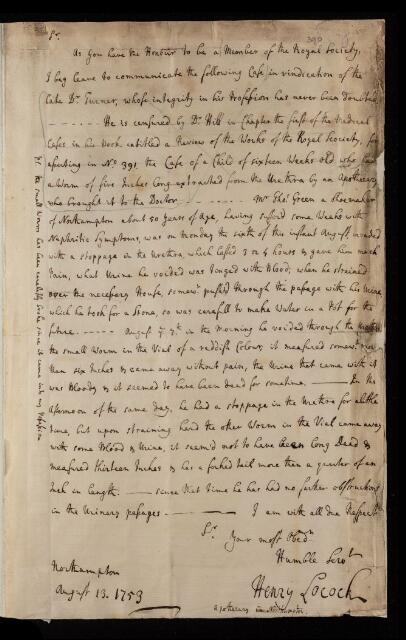 Sr.
As you have the Honour to be a Member of the Royal Society,
I beg leave to communicate the following Case in vindication of the
late Dr. Turner, whose integrity in his Profession has never been doubted
He is censured by Dr. Hill in Chapter the first of the Medical
Cases in his Book entitled a Review of the Works of the Royal Society, for
asserting in No. 391 the Case of a Child of sixteen Weeks old who had
a Worm of five Inches long extracted from the Urethra by an Apothecary
who brought it to the Doctor. Mr. Thos. Green a Shoemaker
of Northampton about 50 Years of Age, having suffered some Weeks with
Nephritic Symptoms, was on monday the sixth of this instant August invaded
with a stoppage in the Urethra, which lasted 3 or 4 hours & gave him much
Pain, what Urine he voided was tinged with Blood; when he strained
over the necessary House, somewt. pushed through the passage with his Urine
which he took for a Stone, so was carefull to make Water in a Pot for the
future. August ye 7th in the Morning he voided through the Urethra
the small Worm in the Vial of a reddish Colour, it measured somewt. more
than six Inches & came away without pain, the Urine that came with it
was Bloody & it seemed to have been dead for sometime. In the
Afternoon of the same day, he had a stoppage in the Urethra for a little
time, but upon straining hard the other Worm in the Vial came away
with some Blood & Urine, it seem'd not to have been long Dead &
measured thirteen Inches & has a forked tail more than a quarter of an
Inch in length. since that time he has had no farther obstructions
in the Urinary passages I am with all due Respect
Sr.
Your most Obedt.
Humble Servt.
Henry Locock
Apothecary in Northampton.
Northampton
August 13. 1753
NB. the small Worm has been carefully broke since it came into my Possession
390